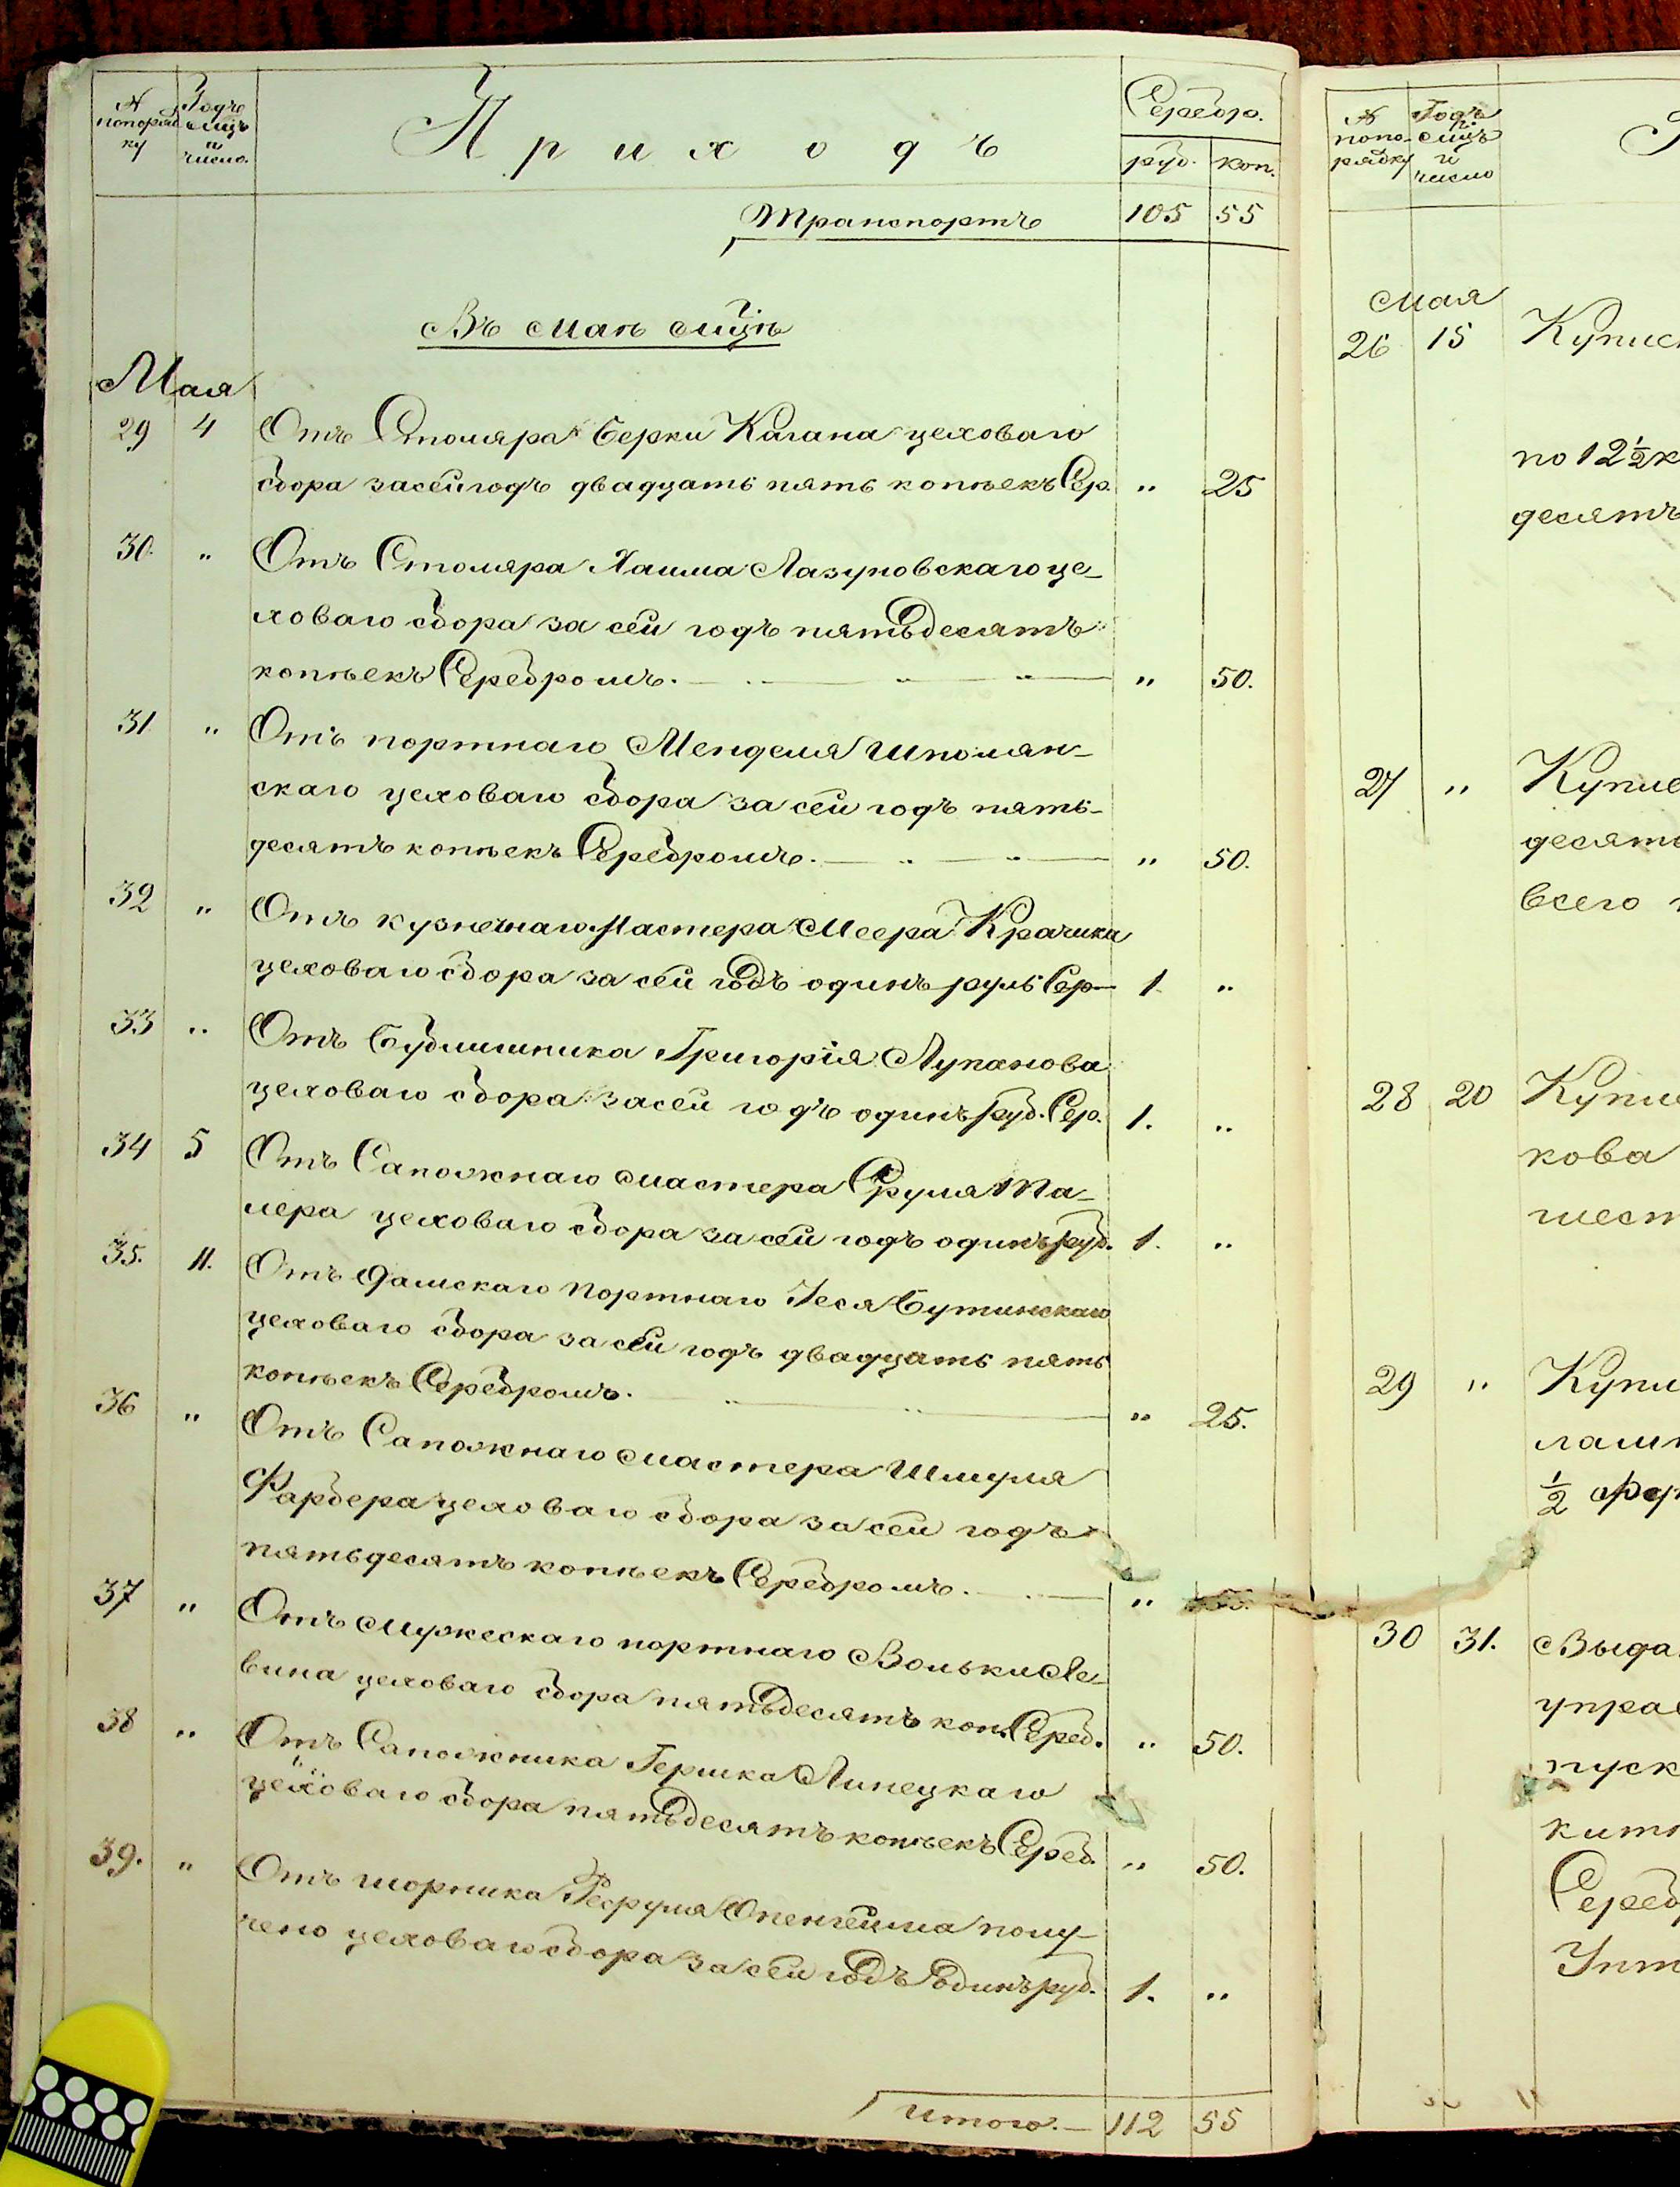 № попоряд ку
Годъ мцъ и число.
Приходъ
Серебро.
руб. коп.
Транспортъ 105 55
Въ маѣ мцѣ
Мая
29 4 Отъ Столяра Берки Кагана цеховаго
сбора засей годъ двадцать пять копѣекъ Сер. " 25
30. " Отъ Столяра Хаима Лазуновскаго це-
ховаго сбора за сей годъ пятьдесятъ
копѣекъ Серебромъ. " 50.
31 " Отъ портнаго Менделя Шполян-
скаго цеховаго сбора за сей годъ пять-
десятъ копѣекъ Серебромъ. " 50.
32 " Отъ кузнечнаго Мастера Меера Крачика
цеховаго сбора за сей годъ одинъ руль Сер 1 "
33 " Отъ Бублишника Григорія Лупанова
цеховаго сбора засей годъ одинъ руб. Сер. 1. "
34 5 Отъ Сапожнаго мастера Сруля Ма-
лера цеховаго сбора за сей годъ одинъ руб. 1. "
35. 11. Отъ дамскаго портнаго Іеся Бутинскаго
цеховаго сбора за сей годъ двадцать пять
копѣекъ Серебромъ. " 25.
36 " Отъ Сапожнаго мастера Шмуля
Фарбера цеховаго сбора за сей годъ
пятьдесятъ копѣекъ Серебромъ. "
37 " Отъ мужескаго портнаго Вольки Ле-
вина цеховаго сбора пятьдесятъ коп. Сереб. " 50.
38 " Отъ Сапожника Гершка Липецкаго
цеховаго сбора пятьдесятъ копѣекъ Сереб. " 50.
39. " Отъ шорника Опенгейма полу-
чено цеховаго сбора за сей годъ одинъ руб. 1. "
Итого. 112 55
№ попо- рядку
Годъ мцъ и число
Мая
26 15 Купле
по 12½ к
десятъ
27 " Купле
десять
всего
28 20 Купле
кова
шест
29 " Купле
лам
½
30 31. Выда
управ
пуск
кит
Сереб
Ито